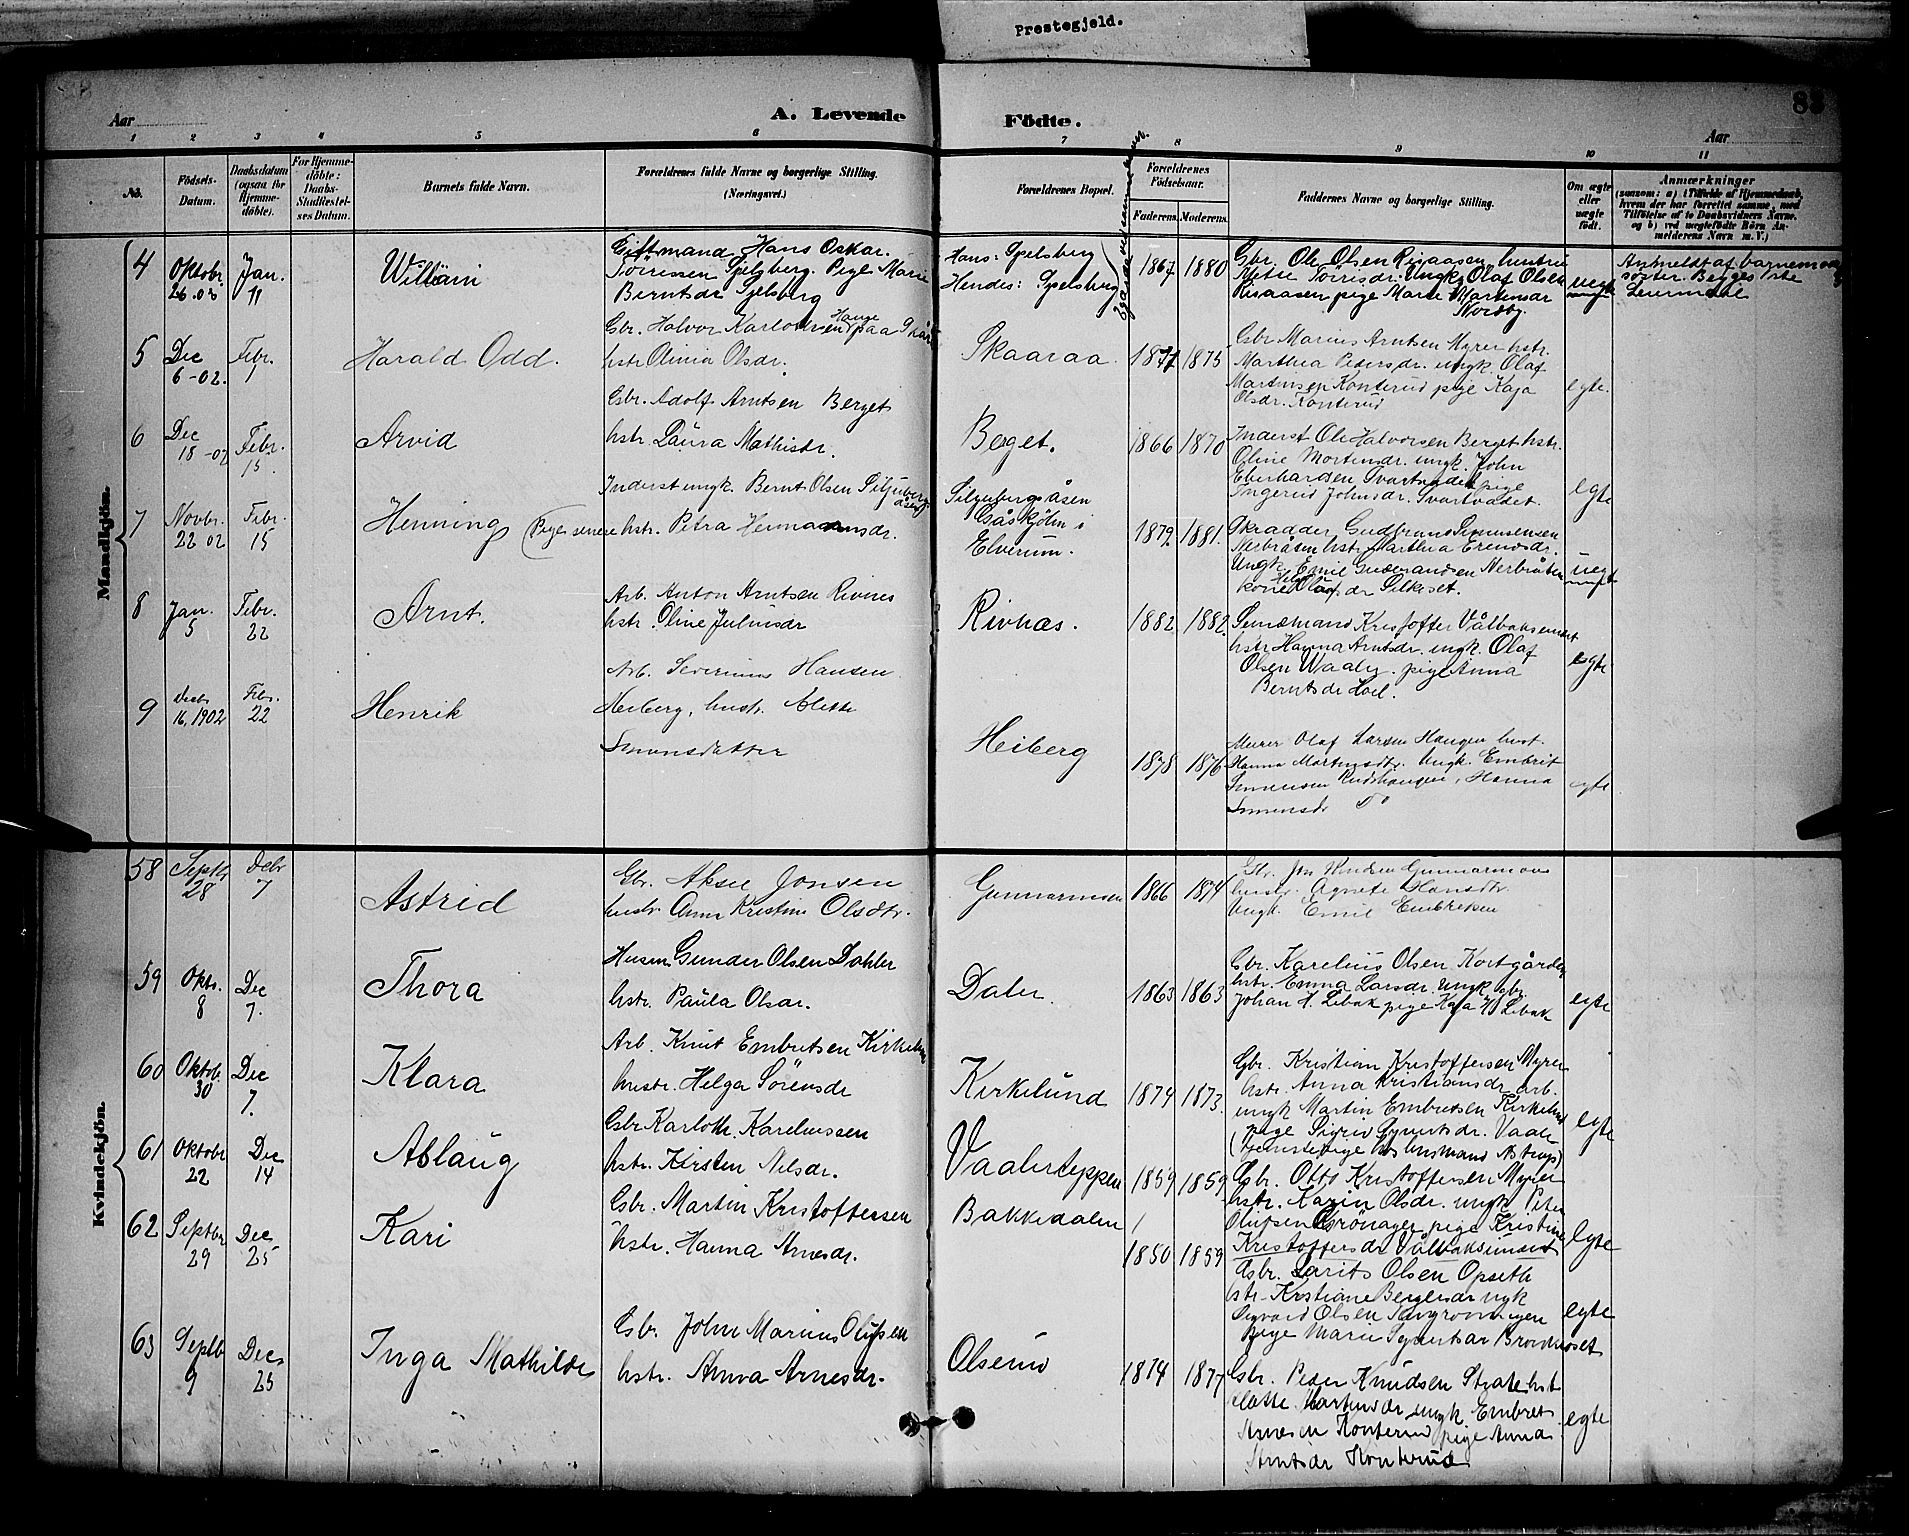 Prestegjeld.
Aar
A. Levende
Födte.
83
Aar
1 2 3 4 5 6 7 8 9 10 11
No.
Födsels-
Datum.
Daabsdatum
(ogsaa for
Hjemme-
döbte).
For Hjemme-
döbte:
Daabs-
Stadfestel-
ses Datum.
Barnets fulde Navn.
Forældrenes fulde Navne og borgerlige Stilling.
(Næringsvei.)
Forældrenes Bopæl.
Forældrenes
Födselsaar.
Faderens. Moderens.
Faddernes Navne og borgerlige Stilling.
Om ægte
eller
uægte
födt.
Anmærkninger
(saasom: a) i Tilfælde af Hjemmedaab,
hvem der har forrettet samme, med
Tilföielse af to Daabsvidners Navne,
og b) ved uægtefödte Börn An-
melderens Navn m. V.)
Mandkjön.
4
Oktobr.
26.02
Jan.
11
William
Giftmand Hans Oskar
Törresen Spelsberg. Pige Marie
Berntsdr Spelsberg
Hans: Spelsberg
Hendes: Spelsberg
1867 1880
Gbr. Ole Olsen Risaasen hustru
Mette Törrisdr. Ungk. Olaf Olsen
Risaasen pige Marie Martinsdr
Nordby
uegte
Anmeldt af barnemoders
söster. Begges 1ste
Leiermaal
5
Dec
6-02.
Febr.
1
Harald Odd.
Gbr. Halvor Karlothsen Hauge paa Skår
hstr Olinia Olsdr.
Skaaraa
1877 1875
Gbr Marius Arntsen Myrer hstr.
Marthea Pedersdr. ungk. Olaf
Martinsen Konterud pige Kaja
Olsdr. Konterud
egte.
6
Dec
18-02
Febr.
15.
Arvid
Gbr. Adolf Arntsen Berget
hstr. Laura Mathisdr.
Berget.
1866 1870
Inderst Ole Halvorsen Berget hstr.
Oline Mortensdr. ungk. John
Eberhardsen Svartvadet pige
Ingerid Johnsdr. Svartvadet.
egte
7
Novbr.
22 02
Febr.
15
Henning
Inderst ungk. Bernt Olsen Siljubergsåsen
(Pige senere hstr. Petra Hermansdr.
Siljubergsåsen
Elverum.
1872 1881.
Skradder Gudbrand Simensen
Nerbråten hstr Marthea Erensdr.
Ungk. Emil Gudbrandsen Nerbråten
kone Helga Olufsdr Silkiset.
uegte
8
Jan.
5
Febr.
22
Arnt.
Arb. Anton Arntsen Rivnes
hstr. Oline Juliusdr
Rivnæs.
1882 1882.
Gunemand Kristoffer Vålbaksemmet
hstr Hanna Arntsdr. ungk. Olaf
Olsen Waaler. pige Anna
Berntsdr Hoel.
egte
9
Decbr
16, 1902
Febr.
22
Henrik
Arb. Severinus Hansen
Heiberg, hustr. Alette
Simensdatter
Heiberg
1878 1876
Murer Olaf Larsen Haugen hust.
Hanna Martinsdtr. Ungk. Embrit
Simensen Rudshaugen, Hanna
Simensdr Do
egte
Kvindekjön.
58
Septbr
28
Decbr
7
Astrid
Gbr. Aksel Jonsen
hustr Anne Kristine Olsdtr.
Gunnarmoen
1866 1874
Gbr. Jon Gunnarmoen
hustr. Agnete Hansdtr.
Ungk. Emil Embretsen
59
Oktr.
8
Dec
7.
Thora
Husm. Gunder Olsen Dahler
hstr. Paula Olsdr.
Daler.
1863 1863
Gbr. Karelius Olsen Kortgården
hstr. Emma Larsdr. ungk gbr
Johan H. Lebak pige Kaja H. Lebak
egte
60
Oktob.
30
Dec
7.
Klara
Arb. Knut Embretsen Kirkelund
hustr. Helga Sörensdr
Kirkelund
1874 1873.
Gbr. Kristian Kristoffersen Myrer
hstr. Anna Kristiansdr. arb.
ungk Martin Embretsen Kirkelund
pige Sigrid Gjertsdr. Vaaler
(tjenestepige hos lensmand Astrup)
egte
61
Oktobr
22
Dec
14
Aslaug
Gbr Karloth. Kareliussen
hstr. Kirsten Nilsdr.
Vaalerteppen
1859 1859
Gbr. Otto Kristoffersen Myrer
hstr. Karin Olsdr. ungk Peter
Olufsen Grönager pige Kristine
Kristoffersdr Vålbaksmet
egte
62
Septbr
29
Dec
25
Kari
Gbr. Martin Kristoffersen
hstr. Hanna Arnesdr.
Bakkedalen
1850 1859
Gbr. Larits Olsen Opseth
hstr. Kristiane Bergersdr ungk
Sigvard Olsen
pige Marie Syvertsdr Brondmoset
egte
63
Septb
9
Dec
25
Inga Mathilde
Gbr. John Marius Olufsen
hstr. Anna Arnesdr.
Olserud
1874 1877
Gbr. Peder Knudsen Strate hst
Mette Martinsdr ungk. Embret
Arnesen Konterud pige Anna
Arntsdr Konterud
egte